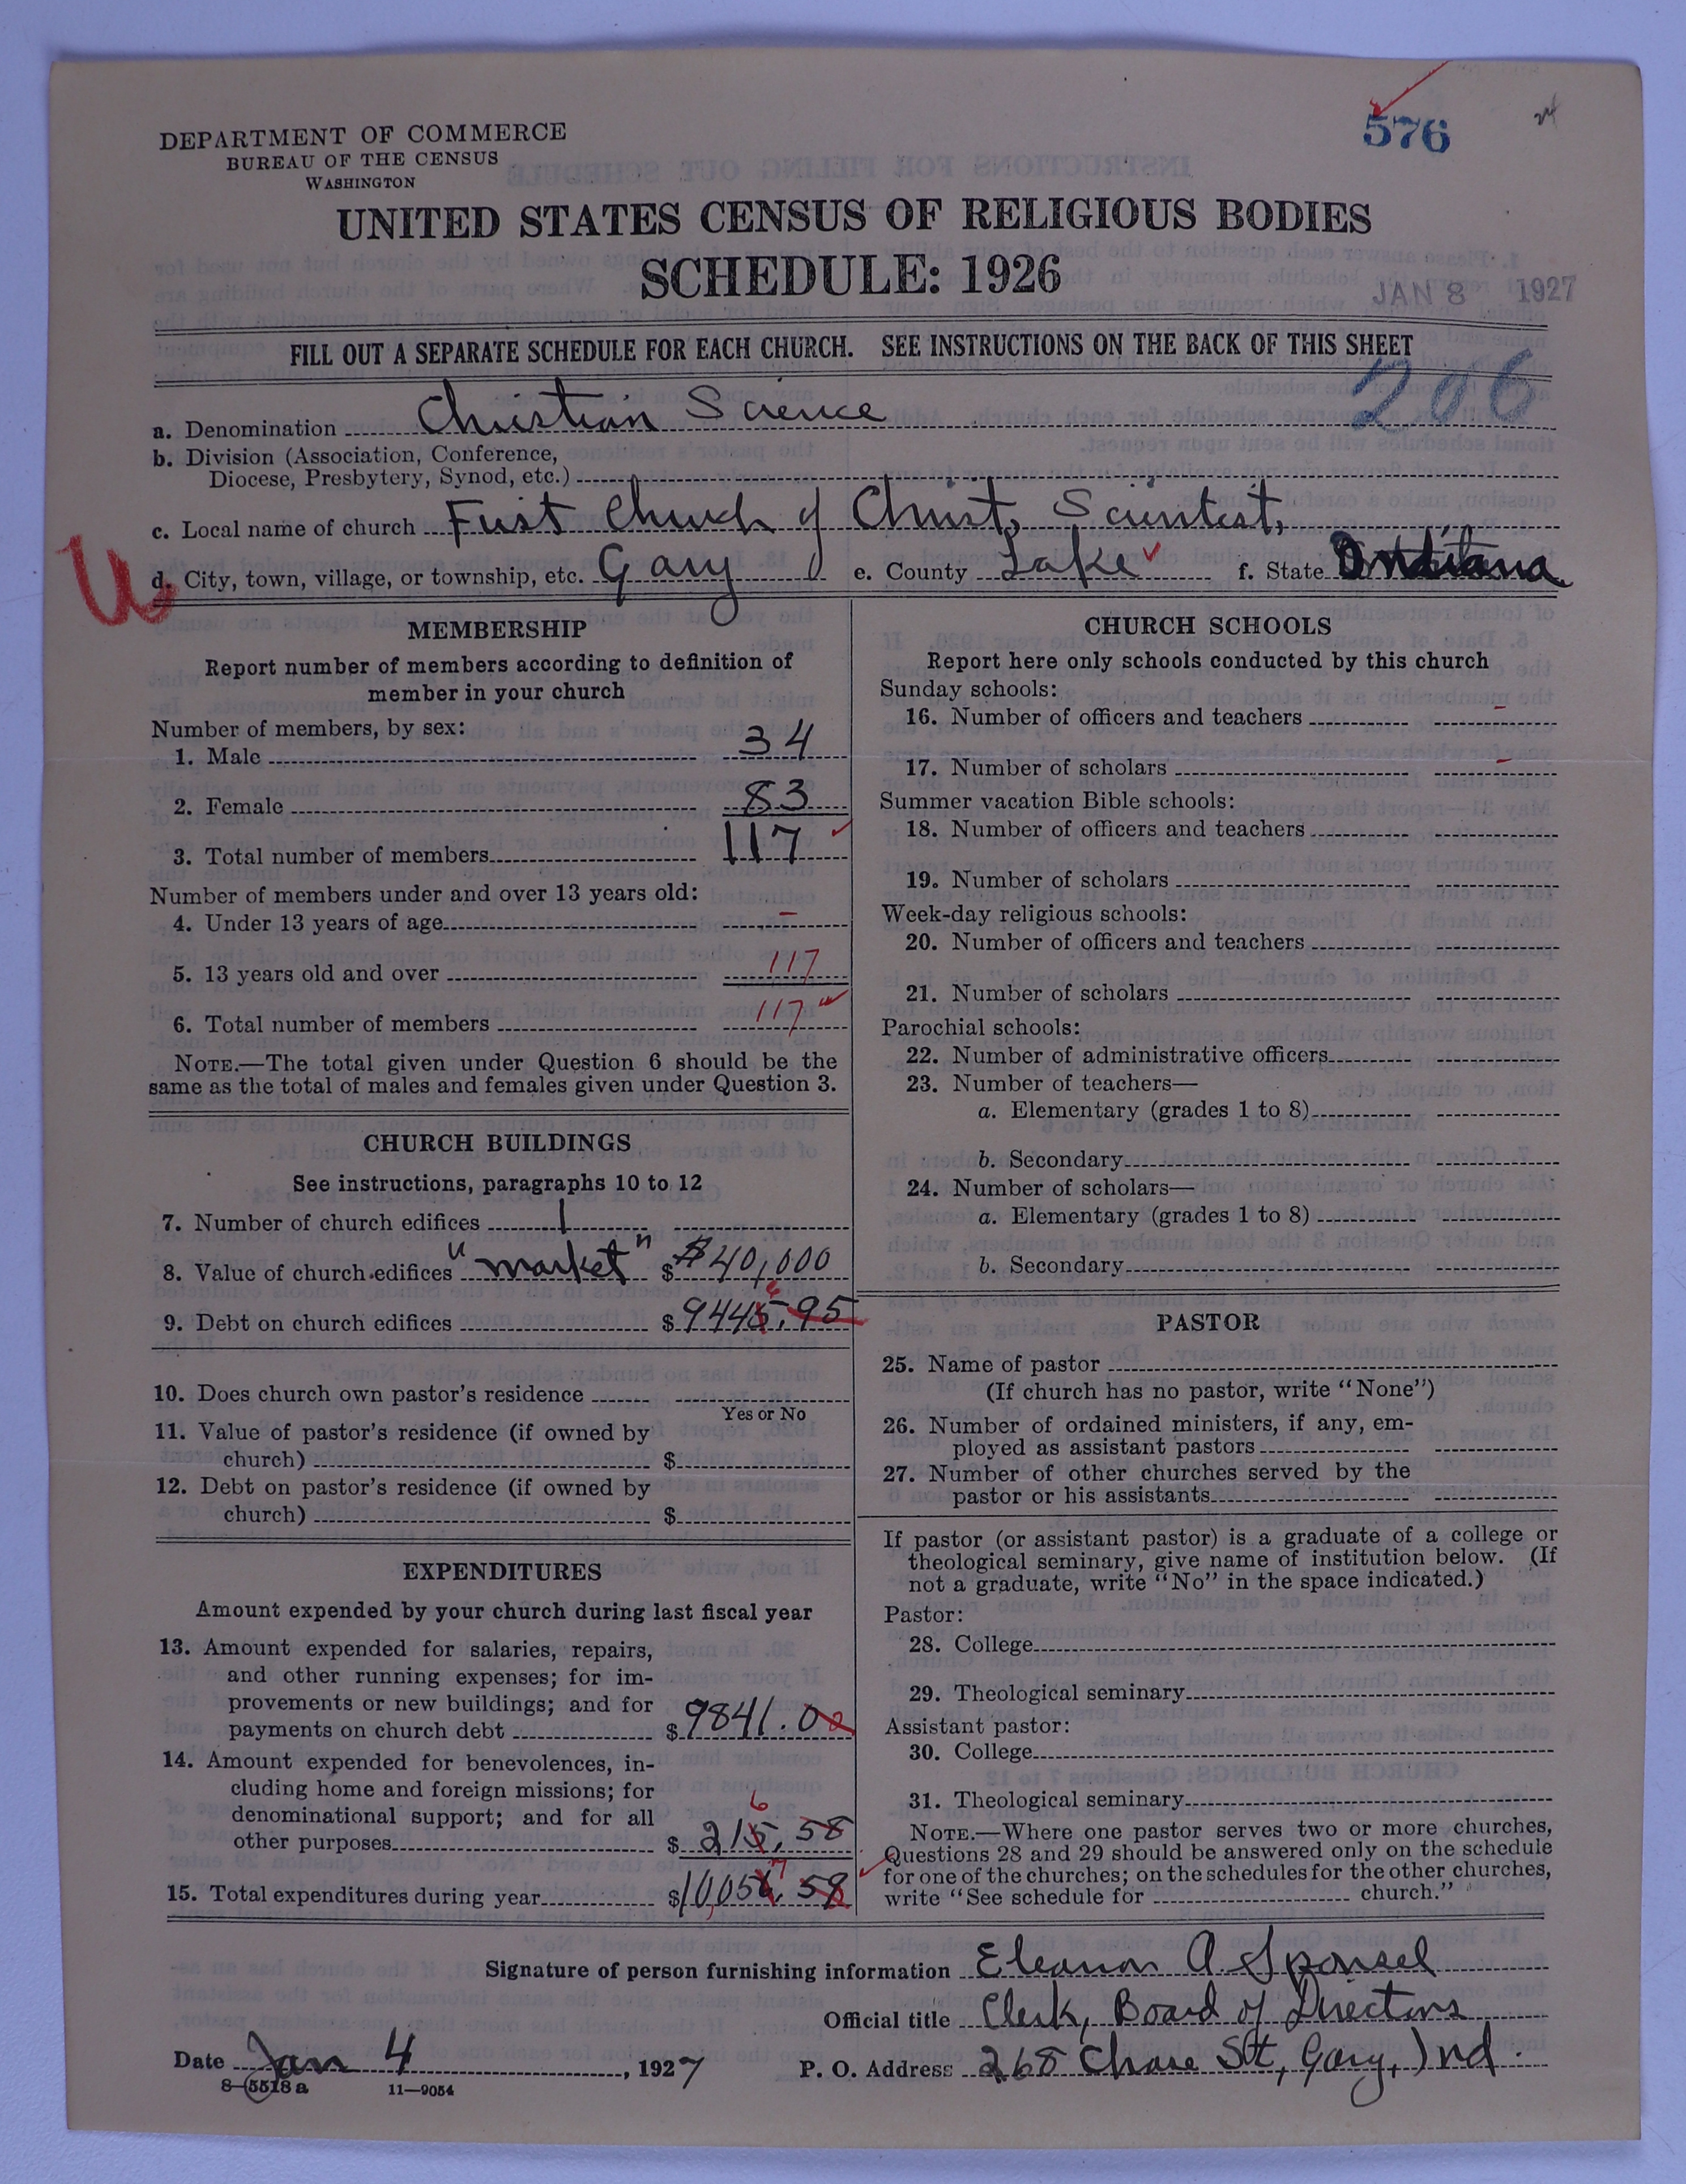 576
DEPARTMENT OF COMMERCE
BUREAU OF THE CENSUS
WASHINGTON
UNITED STATES CENSUS OF RELIGIOUS BODIES
SCHEDULE: 1926
JAN 8 1927
FILL OUT A SEPARATE SCHEDULE FOR EACH CHURCH. SEE INSTRUCTIONS ON THE BACK OF THIS SHEET
206
a. Denomination Christian Science
b. Division (Association, Conference,
Diocese, Presbytery, Synod, etc.)
c. Local name of church First Church of Christ, Scientist,
U
d. City, town, village, or township, etc. Gary e. County Lake f. State Indiana
MEMBERSHIP
Report number of members according to definition of
member in your church
Number of members, by sex:
1. Male 34
2. Female 83
3. Total number of members 117
Number of members under and over 13 years old:
4. Under 13 years of age –
5. 13 years old and over 117
6. Total number of members 117
NOTE.—The total given under Question 6 should be the
same as the total of males and females given under Question 3.
CHURCH BUILDINGS
See instructions, paragraphs 10 to 12
7. Number of church edifices 1
8. Value of church edifices "market" $ $40,000
9. Debt on church edifices $ 9445.95 6
10. Does church own pastor's residence
Yes or No
11. Value of pastor's residence (if owned by
church) $
12. Debt on pastor's residence (if owned by
church) $
EXPENDITURES
Amount expended by your church during last fiscal year
13. Amount expended for salaries, repairs,
and other running expenses; for im-
provements or new buildings; and for
payments on church debt $ 9841.00
14. Amount expended for benevolences, in-
cluding home and foreign missions; for
denominational support; and for all
other purposes $ 215.58 6
15. Total expenditures during year $ 10,056.58 7
CHURCH SCHOOLS
Report here only schools conducted by this church
Sunday schools:
16. Number of officers and teachers –
17. Number of scholars –
Summer vacation Bible schools:
18. Number of officers and teachers
19. Number of scholars
Week-day religious schools:
20. Number of officers and teachers
21. Number of scholars
Parochial schools:
22. Number of administrative officers
23. Number of teachers—
a. Elementary (grades 1 to 8)
b. Secondary
24. Number of scholars—
a. Elementary (grades 1 to 8)
b. Secondary
PASTOR
25. Name of pastor
(If church has no pastor, write "None")
26. Number of ordained ministers, if any, em-
ployed as assistant pastors
27. Number of other churches served by the
pastor or his assistants
If pastor (or assistant pastor) is a graduate of a college or
theological seminary, give name of institution below. (If
not a graduate, write "No" in the space indicated.)
Pastor:
28. College
29. Theological seminary
Assistant pastor:
30. College
31. Theological seminary
NOTE.—Where one pastor serves two or more churches,
Questions 28 and 29 should be answered only on the schedule
for one of the churches; on the schedules for the other churches,
write "See schedule for church."
Signature of person furnishing information Eleanor A Sponsel
Official title Clerk, Board of Directors
Date Jan 4, 1927 P. O. Address 268 Chase St, Gary, Ind.
8—5518 a 11—9054